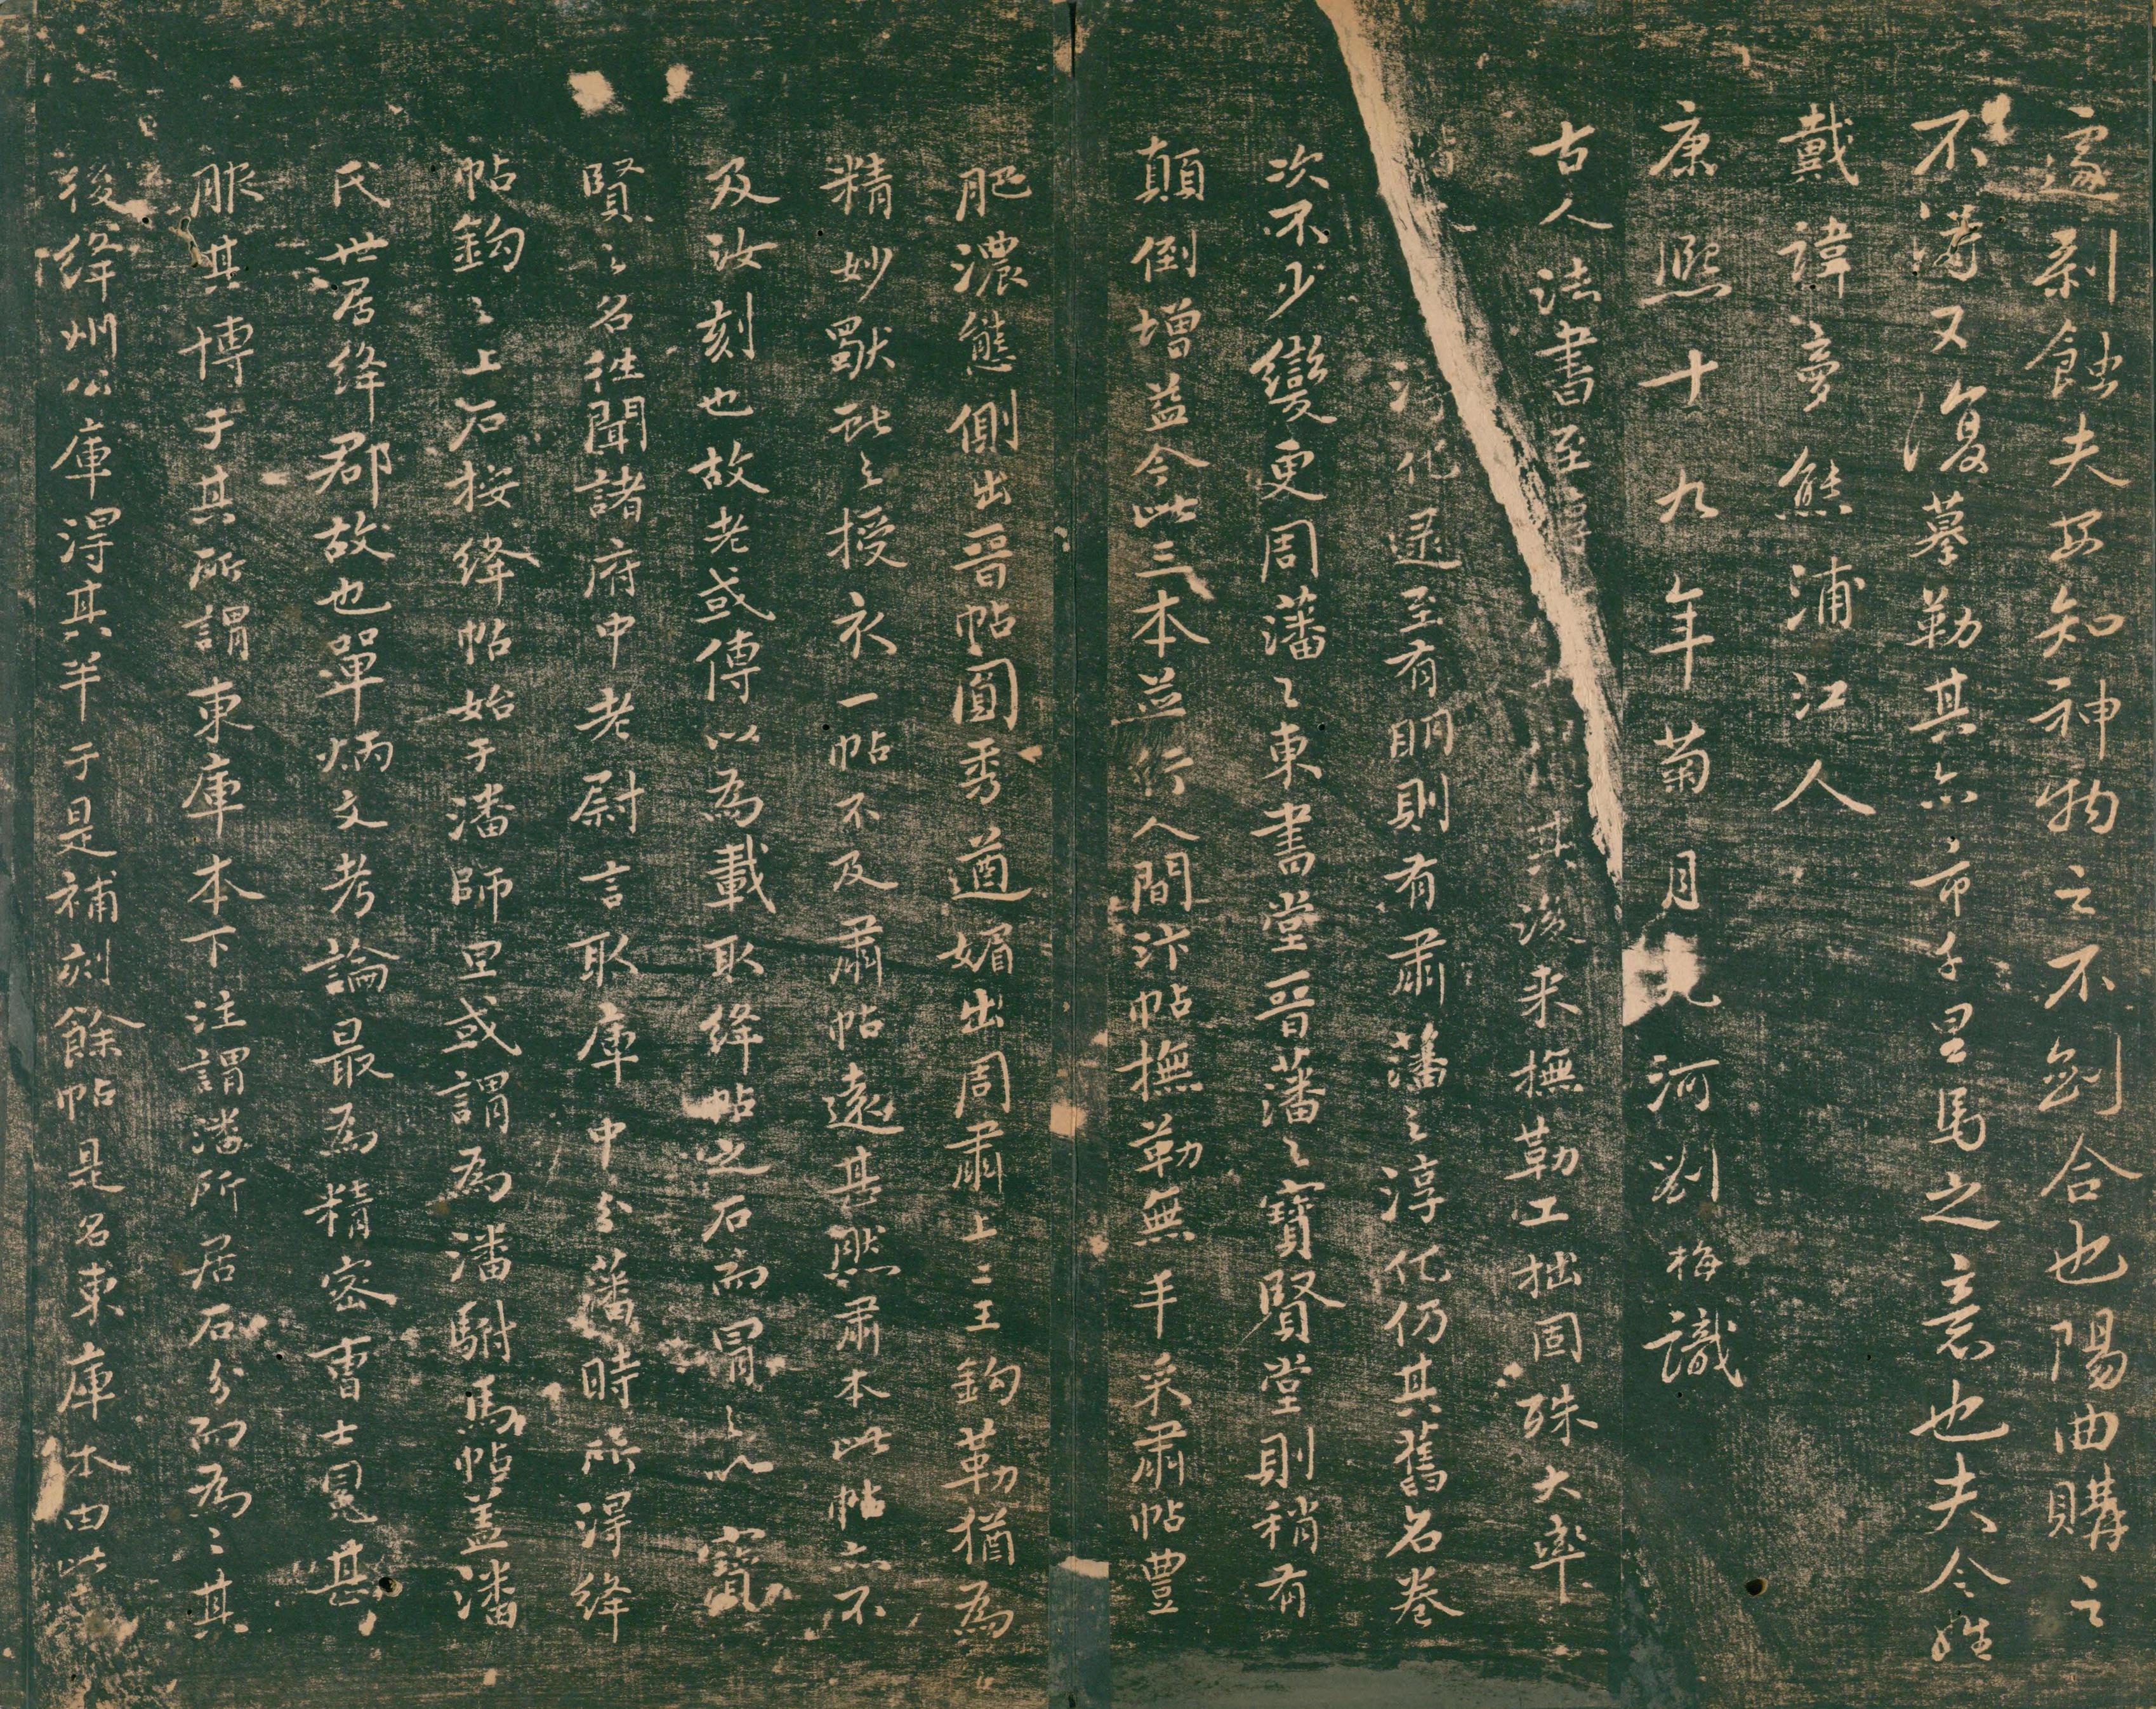 遽剝蝕夫安知神物之不劍合也陽曲購之
不浔又復摹勒其亦市千里馬之意也夫令姓
戴諱夢熊浦江人
康熙十九年菊月 河劉梅識
古人法書至 其後来撫勒工拙固殊大率
淳化逮至有明則有肅藩之淳化仍其舊名卷
次不少變更周藩之東書堂晉藩之寶賢堂則稍有
顛倒增益今此三本並行人間汴帖撫勒無 采肅帖豊
肥濃態側出晉帖圓秀遒媚出周肅上二王鈎勒猶為
精妙獻 之授衣一帖不及肅帖遠甚然肅本此帖亦不
及汝刻也故老或傳以為載取絳帖之石而冐之以寶
賢之名徃聞諸府中老尉言取庫中分藩時所浔絳
帖鈎之上石按絳帖始于潘師旦或謂為潘駙馬帖盖潘
氏世居絳郡故也單炳文考論最為精密曹士冕甚
服其博于其所謂東庫本下注謂潘所居石分而為二其
後絳州公庫浔其半于是補刻餘帖是名東庫本由此